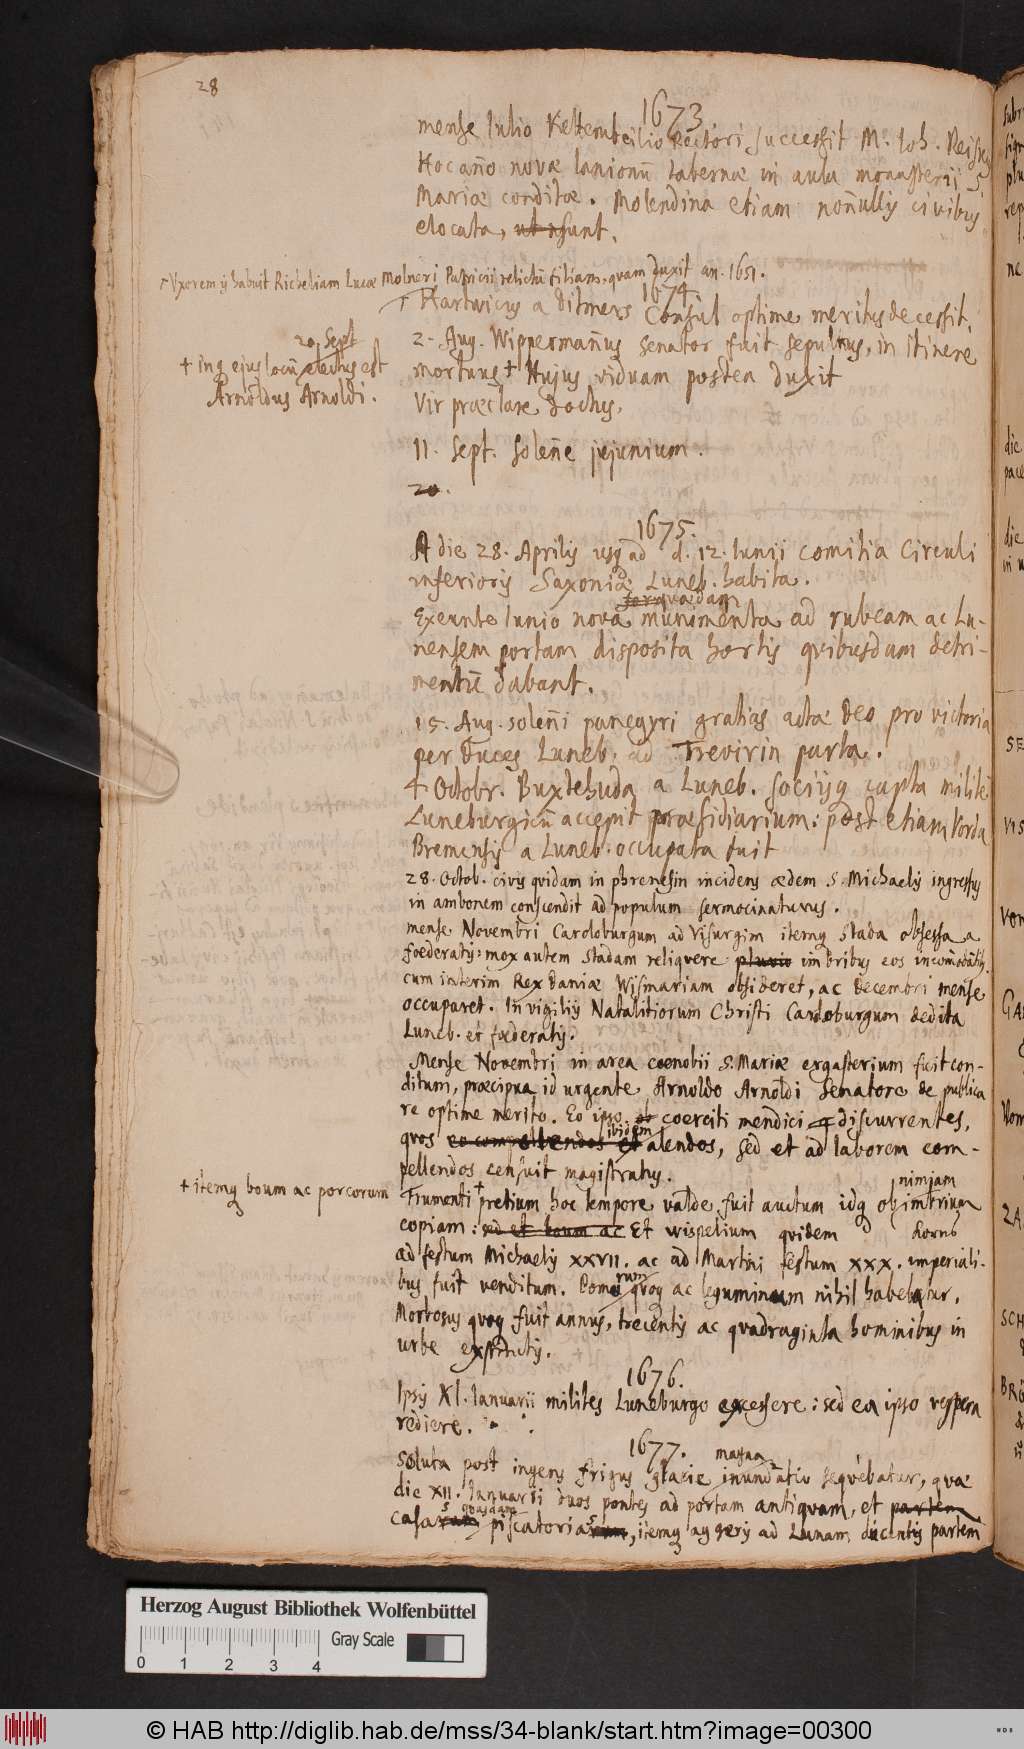 28
1673
mense Iulio Keltembeilio Rectori successit M. Ioh. Reiske
Hoc año novæ lanionũ tabernæ in aula monasterii S.
Mariæ conditæ. Molendina etiam noñullis civibus
elocata, ut sunt.
Uxorem is habuit Richeliam Lucæ Molneri Patricii relictũ filiam, quam duxit an. 1651.
1674
Hartwicus a Ditmers Consul optime meritus decessit.
2. Aug. Wippermañus senator fuit sepultus, in itinere
mortuus + Hujus viduam postea duxit
Vir præclare doctus.
20 Sept
+ inq ejus locũ electus est
Arnoldus Arnoldi.
11. Sept. soleñe jejunium.
20.
1675.
A die 28. Aprilis usq ad d. 12. Iunii comitia Circuli
inferioris Saxoniæ Luneb. habita.
quædam
Exeunte Iunio nova munimenta ad rubeam ac Lu-
nensem portam disposita hortis quibusdam detri-
mentũ dabant.
15. Aug. soleñi panegyri gratiæ actæ Deo pro victoria
per Duces Luneb. ad Trevirin parta.
4 Octobr. Buxtehuda a Luneb. sociisq capta milite
Luneburgicũ accepit præsidiarium: post etiam Vorda
Bremensis a Luneb. occupata fuit
28. Octob. civis quidam in phrenesin incidens ædem S. Michaelis ingressus
in ambonem conscendit ad populum sermocinaturus.
mense Novembri Caroloburgum ad Visurgim itemq Stada obsessa a
fœderatis: mox autem Stadam reliquere pluvio imbribus eos incomodãtib.
cum interim Rex Daniæ Wismariam obsideret, ac Decembri mense
occuparet. In vigiliis Natalitiorum Christi Caroloburgum dedita
Luneb. et fœderatis.
Mense Novembri in area cœnobii S. Mariæ ergasterium fuit con-
ditum, præcipua id urgente Arnoldo Arnoldi Senatore de publica
re optime merito. Eo ipso coerciti mendici discurrentes,
quos eo compellendos et ibidem alendos, sed et ad laborem com-
pellendos censuit magistratus.
+ itemq boum ac porcorum
Frumenti + pretium hoc tempore valde fuit auctum idq ob nimiam imbrium
copiam: sed et boum ac Et wispelium quidem
ad festum Michaelis XXVII. ac ad Martini festum XXX. imperiali-
bus fuit venditum. Pomorum quoq ac leguminum nihil habebatur.
Morbosus quoq fuit annus, trecentis ac quadraginta hominibus in
urbe exstinctis.
1676.
Ipsis XI. Ianuarii milites Luneburgo excessere: sed ea ipso vespera
rediere.
1677.
Soluta post ingens frigus glacie magna inundatio sequebatur, quæ
die XII. Ianuarii duos pontes ad portam antiquam, et partem
casas quasdam piscatorias, itemq aggeris ad Lunam ducentis partem
Herzog August Bibliothek Wolfenbüttel
Gray Scale
0 1 2 3 4
© HAB http://diglib.hab.de/mss/34-blank/start.htm?image=00300